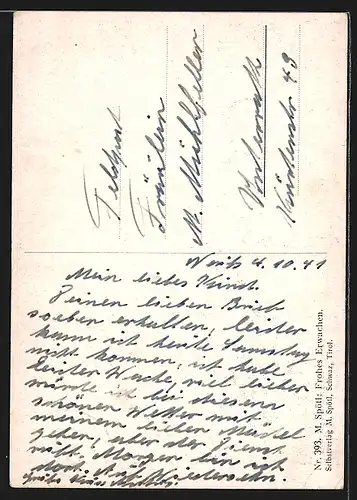 Feldpost
Fräulein
M. Mühlfellen
Vorderrath
49
4.10.41
Mein liebes Kind.
Deinen lieben Brief
soeben erhalten, leider
kann ich heute Samstag
nicht kommen, ich habe
leider Wache, viel lieber
würde ich bei diesem
schönen Wetter mit
meinem lieben Mädel
gehen, aber der Dienst
Morgen bin ich
dort. Auf Wiedersehn.
Nr. 393. M. Spötl: Frohes Erwachen.
Selbstverlag M. Spötl, Schwaz, Tirol.